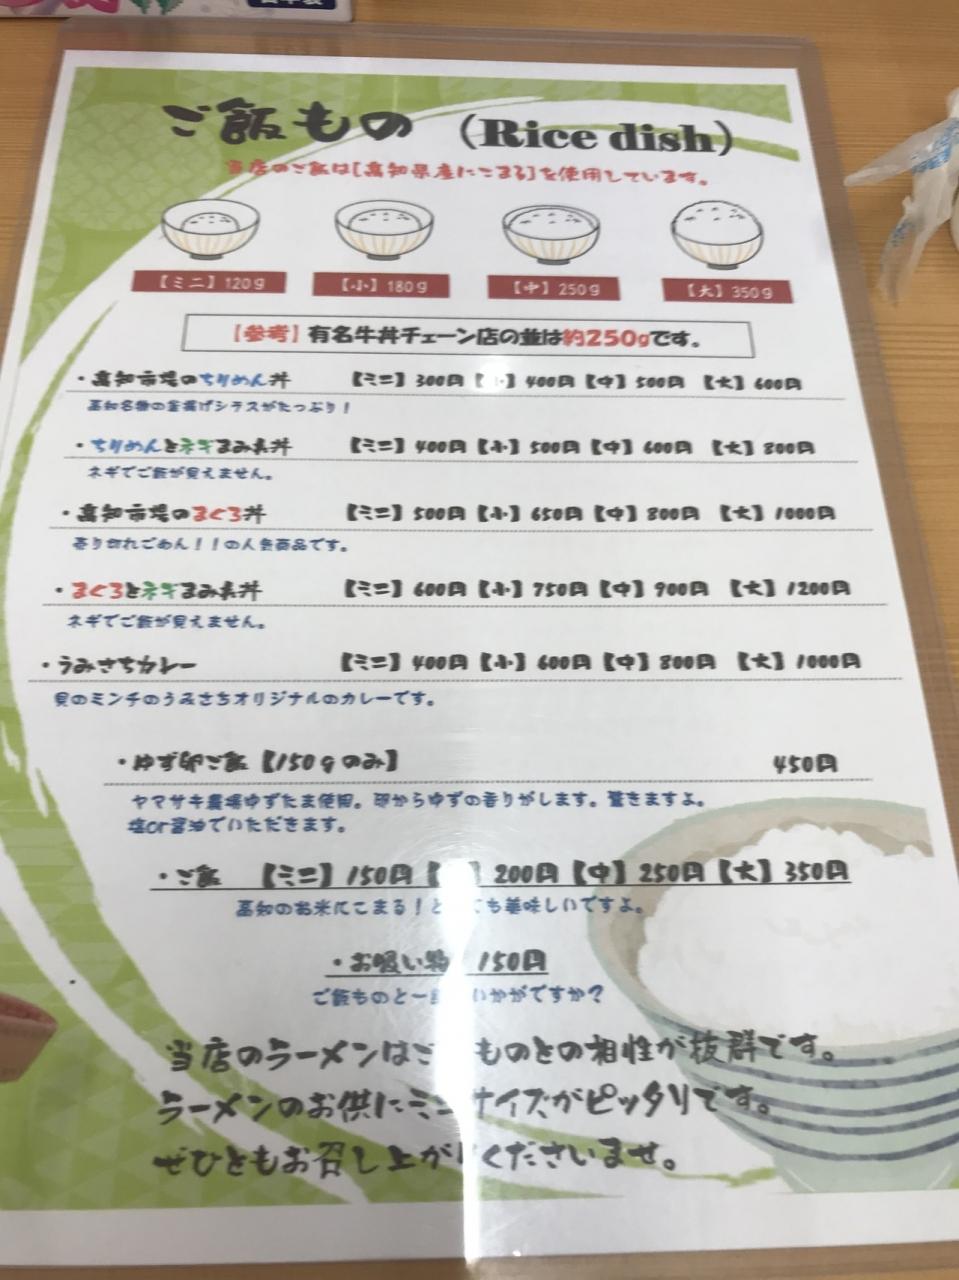 ご飯もの (Rice dish)
当店のご飯は[高知県産にこまる]を使用しています。
【ミニ】120g 【小】180g 【中】250g 【大】350g
【参考】有名牛丼チェーン店の並は約250gです。
・高知市場のちりめん丼 【ミニ】300円 【小】400円【中】500円 【大】600円
高知名物の釜揚げシラスがたっぷり！
・ちりめんとネギまみれ丼 【ミニ】400円【小】500円【中】600円 【大】800円
ネギでご飯が見えません。
・高知市場のまぐろ丼 【ミニ】500円【小】650円【中】800円 【大】1000円
売り切れごめん！！の人気商品です。
・まぐろとネギまみれ丼 【ミニ】600円【小】750円【中】900円 【大】1200円
ネギでご飯が見えません。
・うみさちカレー 【ミニ】400円【小】600円【中】800円 【大】1000円
貝のミンチのうみさちオリジナルのカレーです。
・ゆず卵ご飯【150gのみ】 450円
ヤマサキ農場ゆずたま使用。卵からゆずの香りがします。驚きますよ。
塩or醤油でいただきます。
・ご飯 【ミニ】150円【 】200円【中】250円【大】350円
高知のお米にこまる！と ても美味しいですよ。
・お吸い物 150円
ご飯ものと一 いかがですか？
当店のラーメンはご ものとの相性が抜群です。
ラーメンのお供にミニサイズがピッタリです。
ぜひともお召し上がりくださいませ。